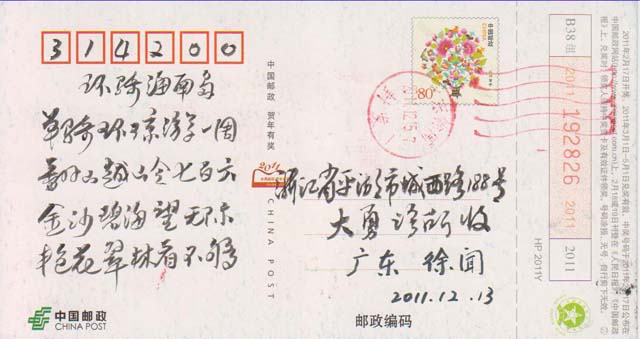 314200
环骑海南岛
单骑环琼游一周
翻山越岭七百六
金沙碧海望无际
艳花翠林看不够
中国邮政
CHINA POST
中国邮政 贺年有奖
2011
CHINA POST
中国邮政
CHINA
80
浙江省平湖市城西路188号
大勇诊所收
广东 徐闻
2011.12.13
邮政编码
HP 2011Y
B38组
2011
192826
2011
2011